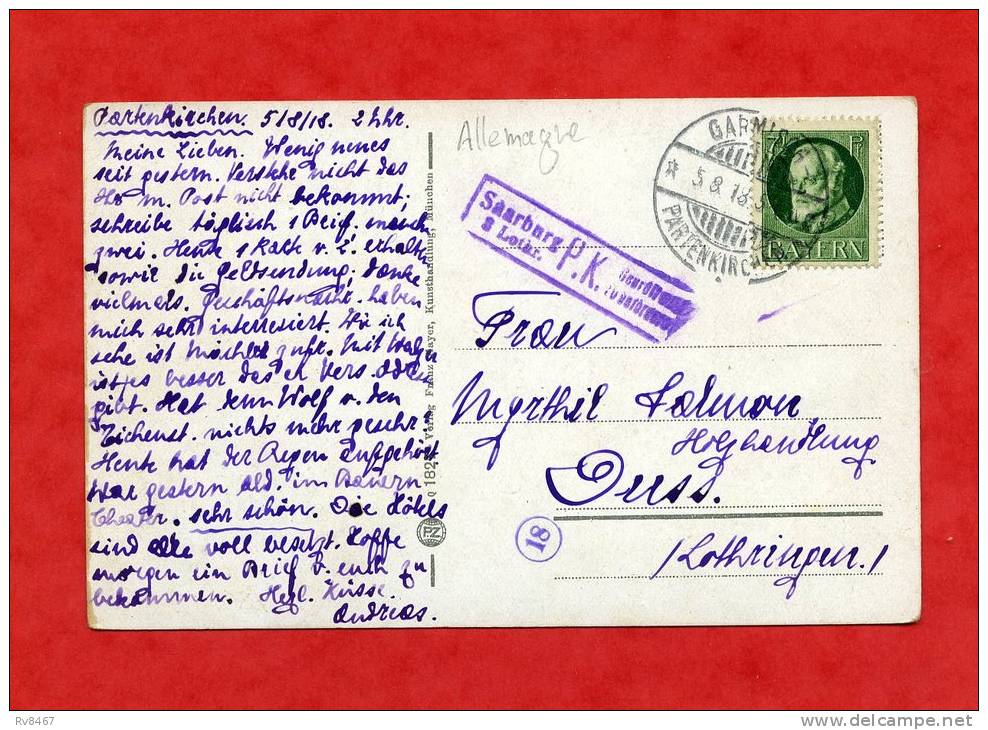 Partenkirchen. 5/8/18. 2 Uhr.
Meine Lieben. Wenig neues
seit gestern. Verstehe nicht das
Ihr m. Post nicht bekommt;
schreibe täglich 1 Brief. manch
zwei. Heute 1 Karte v. erhalt
sowie die Geldsendung; danke
vielmals. Geschäftsnachr. haben
mich sehr interessiert. Wie ich
sehe ist zufr. Mit
ist es besser das er Vers.
gibt. Hat denn Wolf v. den
nichts mehr geschr.
Heute hat der Regen aufgehört
War gestern im Bauern
theater. sehr schön. Die Hôtels
sind alle voll besetzt. Hoffe
morgen ein Brief v. euch zu
bekommen. Herzl. Küsse.
Andreas.
Verlag Franz Mayer, Kunsthandlung, München
Allemagne
Saarburg
8 Lothr.
P.K.
GARMISCH
5.8.18.
PARTENKIRCHEN
7½ P
BAYERN
Frau
Myrthil Salmon
Holzhandlung
Duss.
(Lothringen.)
18
Rv8467
delcampe.net